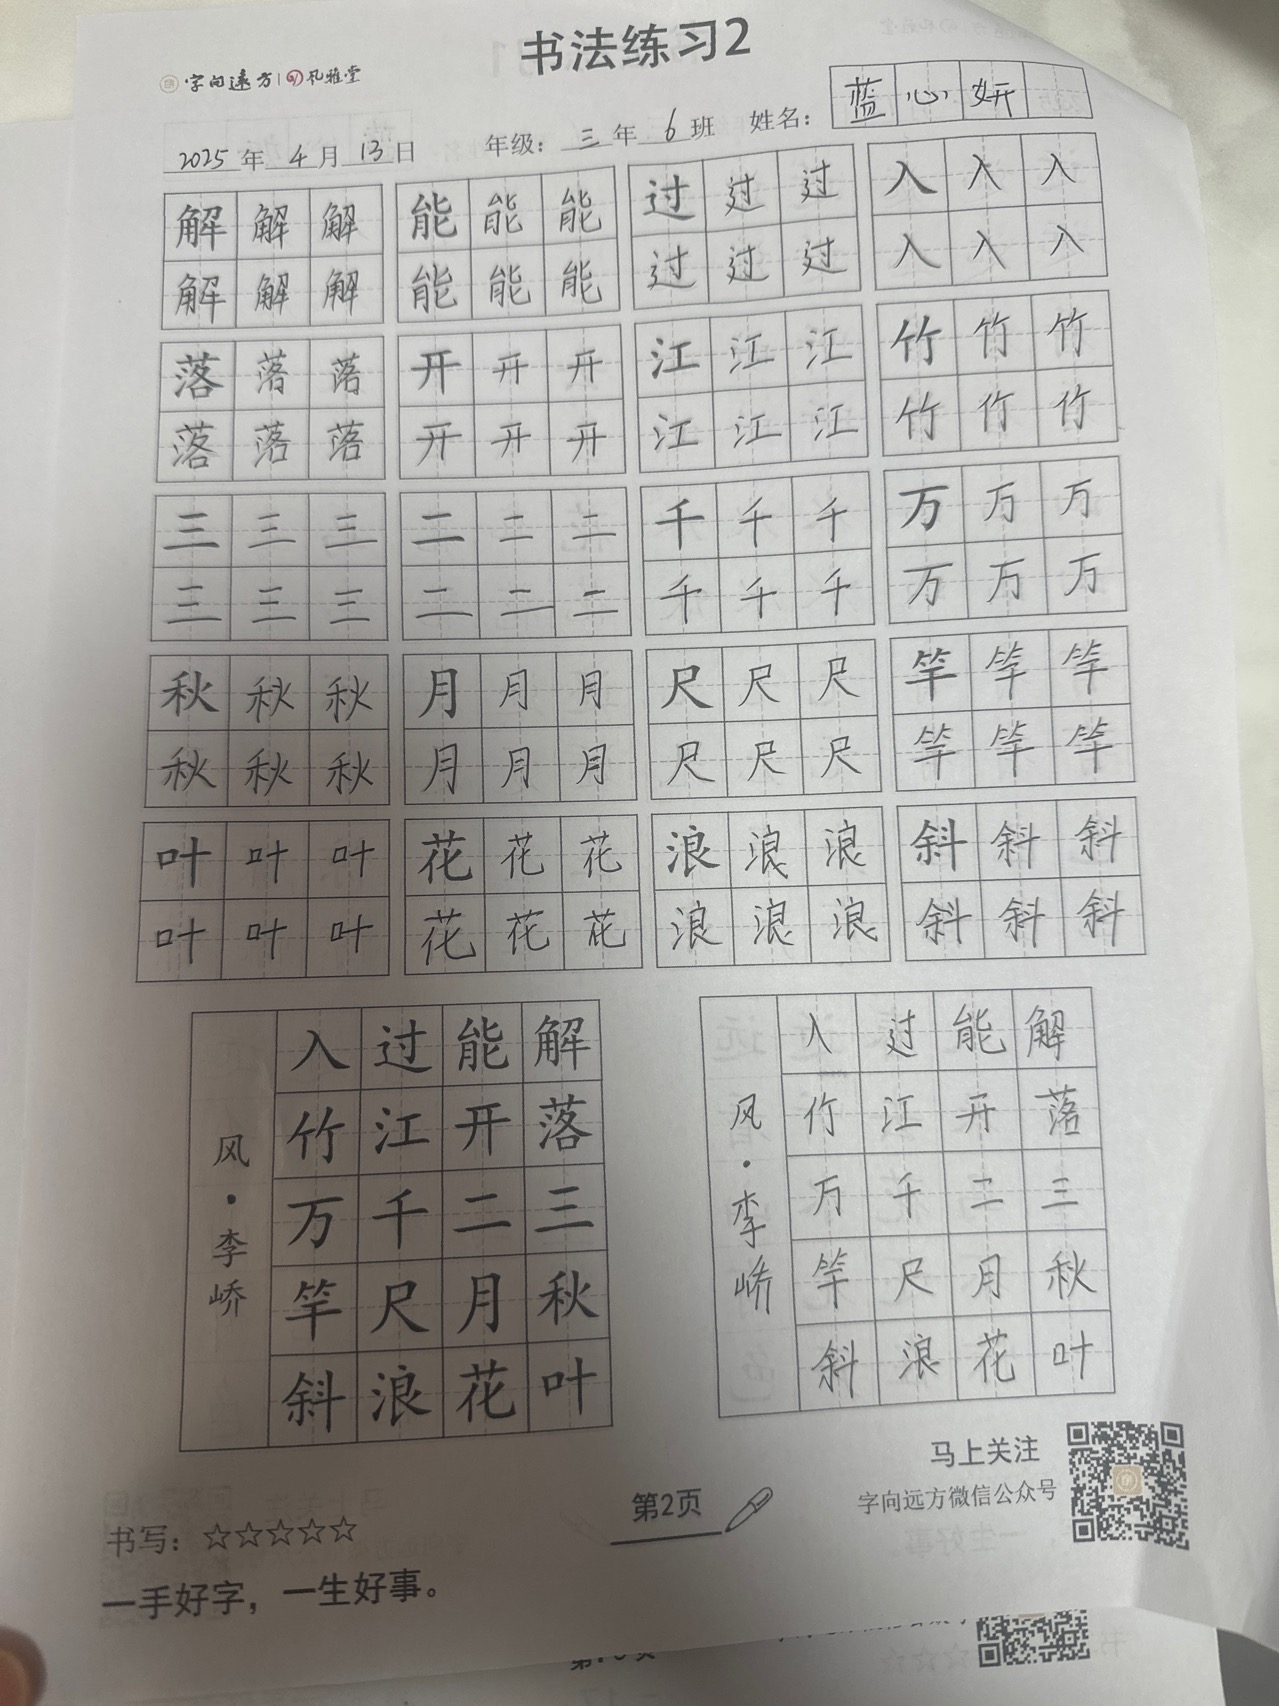 书法练习2
字向远方 | 礼雅堂
2025年 4月 13日 年级：三年 6班 姓名：蓝心妍
解解解 能能能 过过过 入入入
解解解 能能能 过过过 入入入
落落落 开开开 江江江 竹竹竹
落落落 开开开 江江江 竹竹竹
三三三 二二二 千千千 万万万
三三三 二二二 千千千 万万万
秋秋秋 月月月 尺尺尺 竿竿竿
秋秋秋 月月月 尺尺尺 竿竿竿
叶叶叶 花花花 浪浪浪 斜斜斜
叶叶叶 花花花 浪浪浪 斜斜斜
解落三秋叶
能开二月花
过江千尺浪
入竹万竿斜
风·李峤
解落三秋叶
能开二月花
过江千尺浪
入竹万竿斜
风·李峤
书写：☆☆☆☆☆
一手好字，一生好事。
第2页
马上关注
字向远方微信公众号